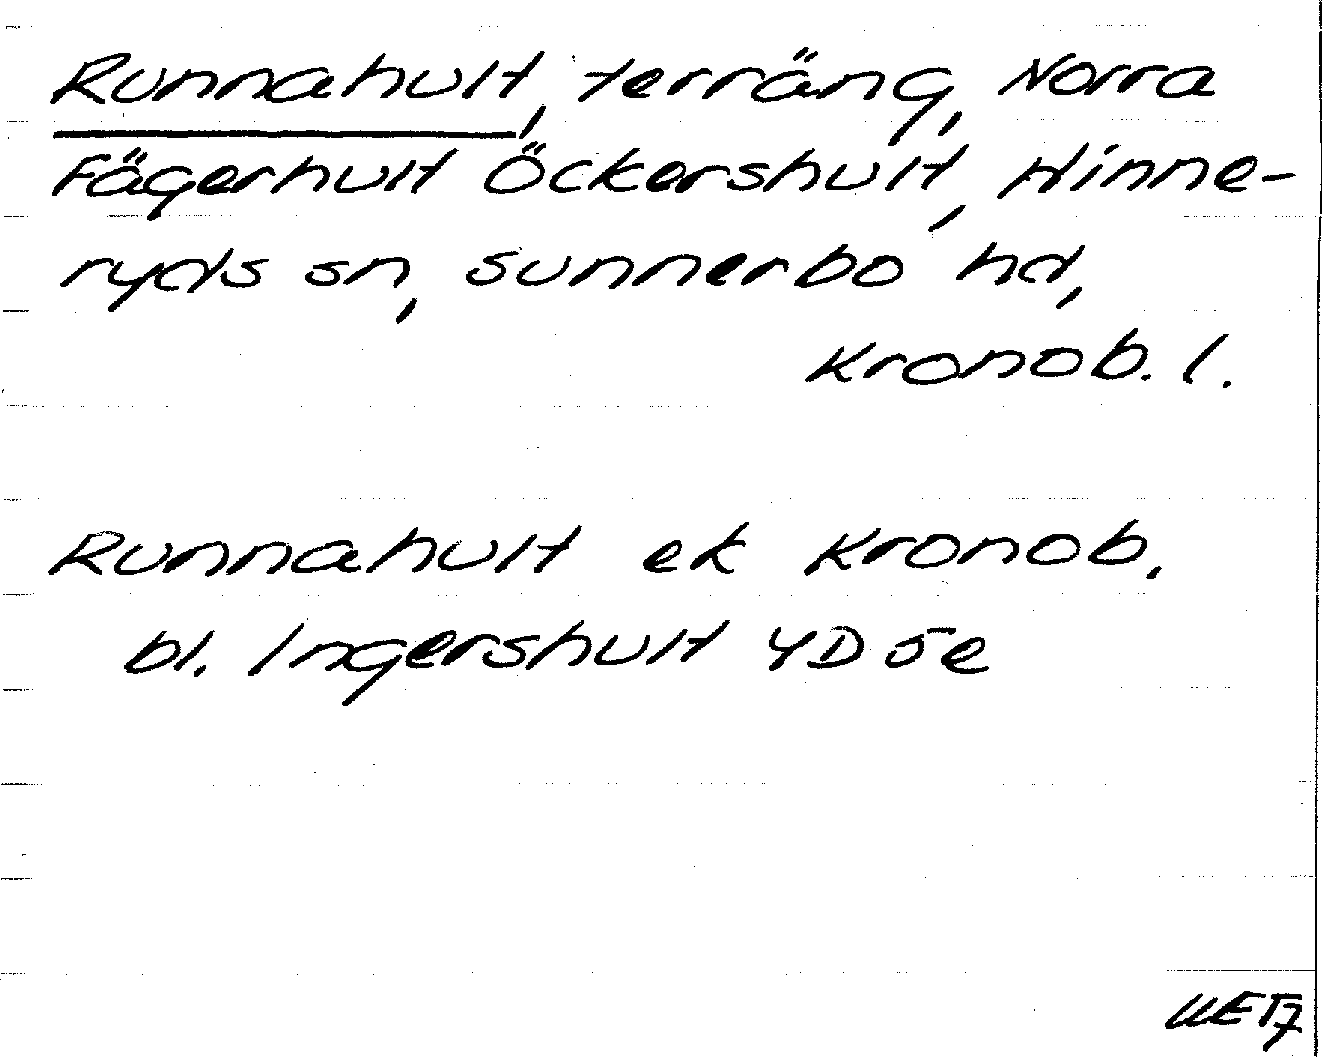 Runnahult, terräng, Norra
Fägerhult Öckershult, Hinne-
ryds sn, Sunnerbo hd,
Kronob. l.
Runnahult ek Kronob.
bl. Ingershult 4D 5e